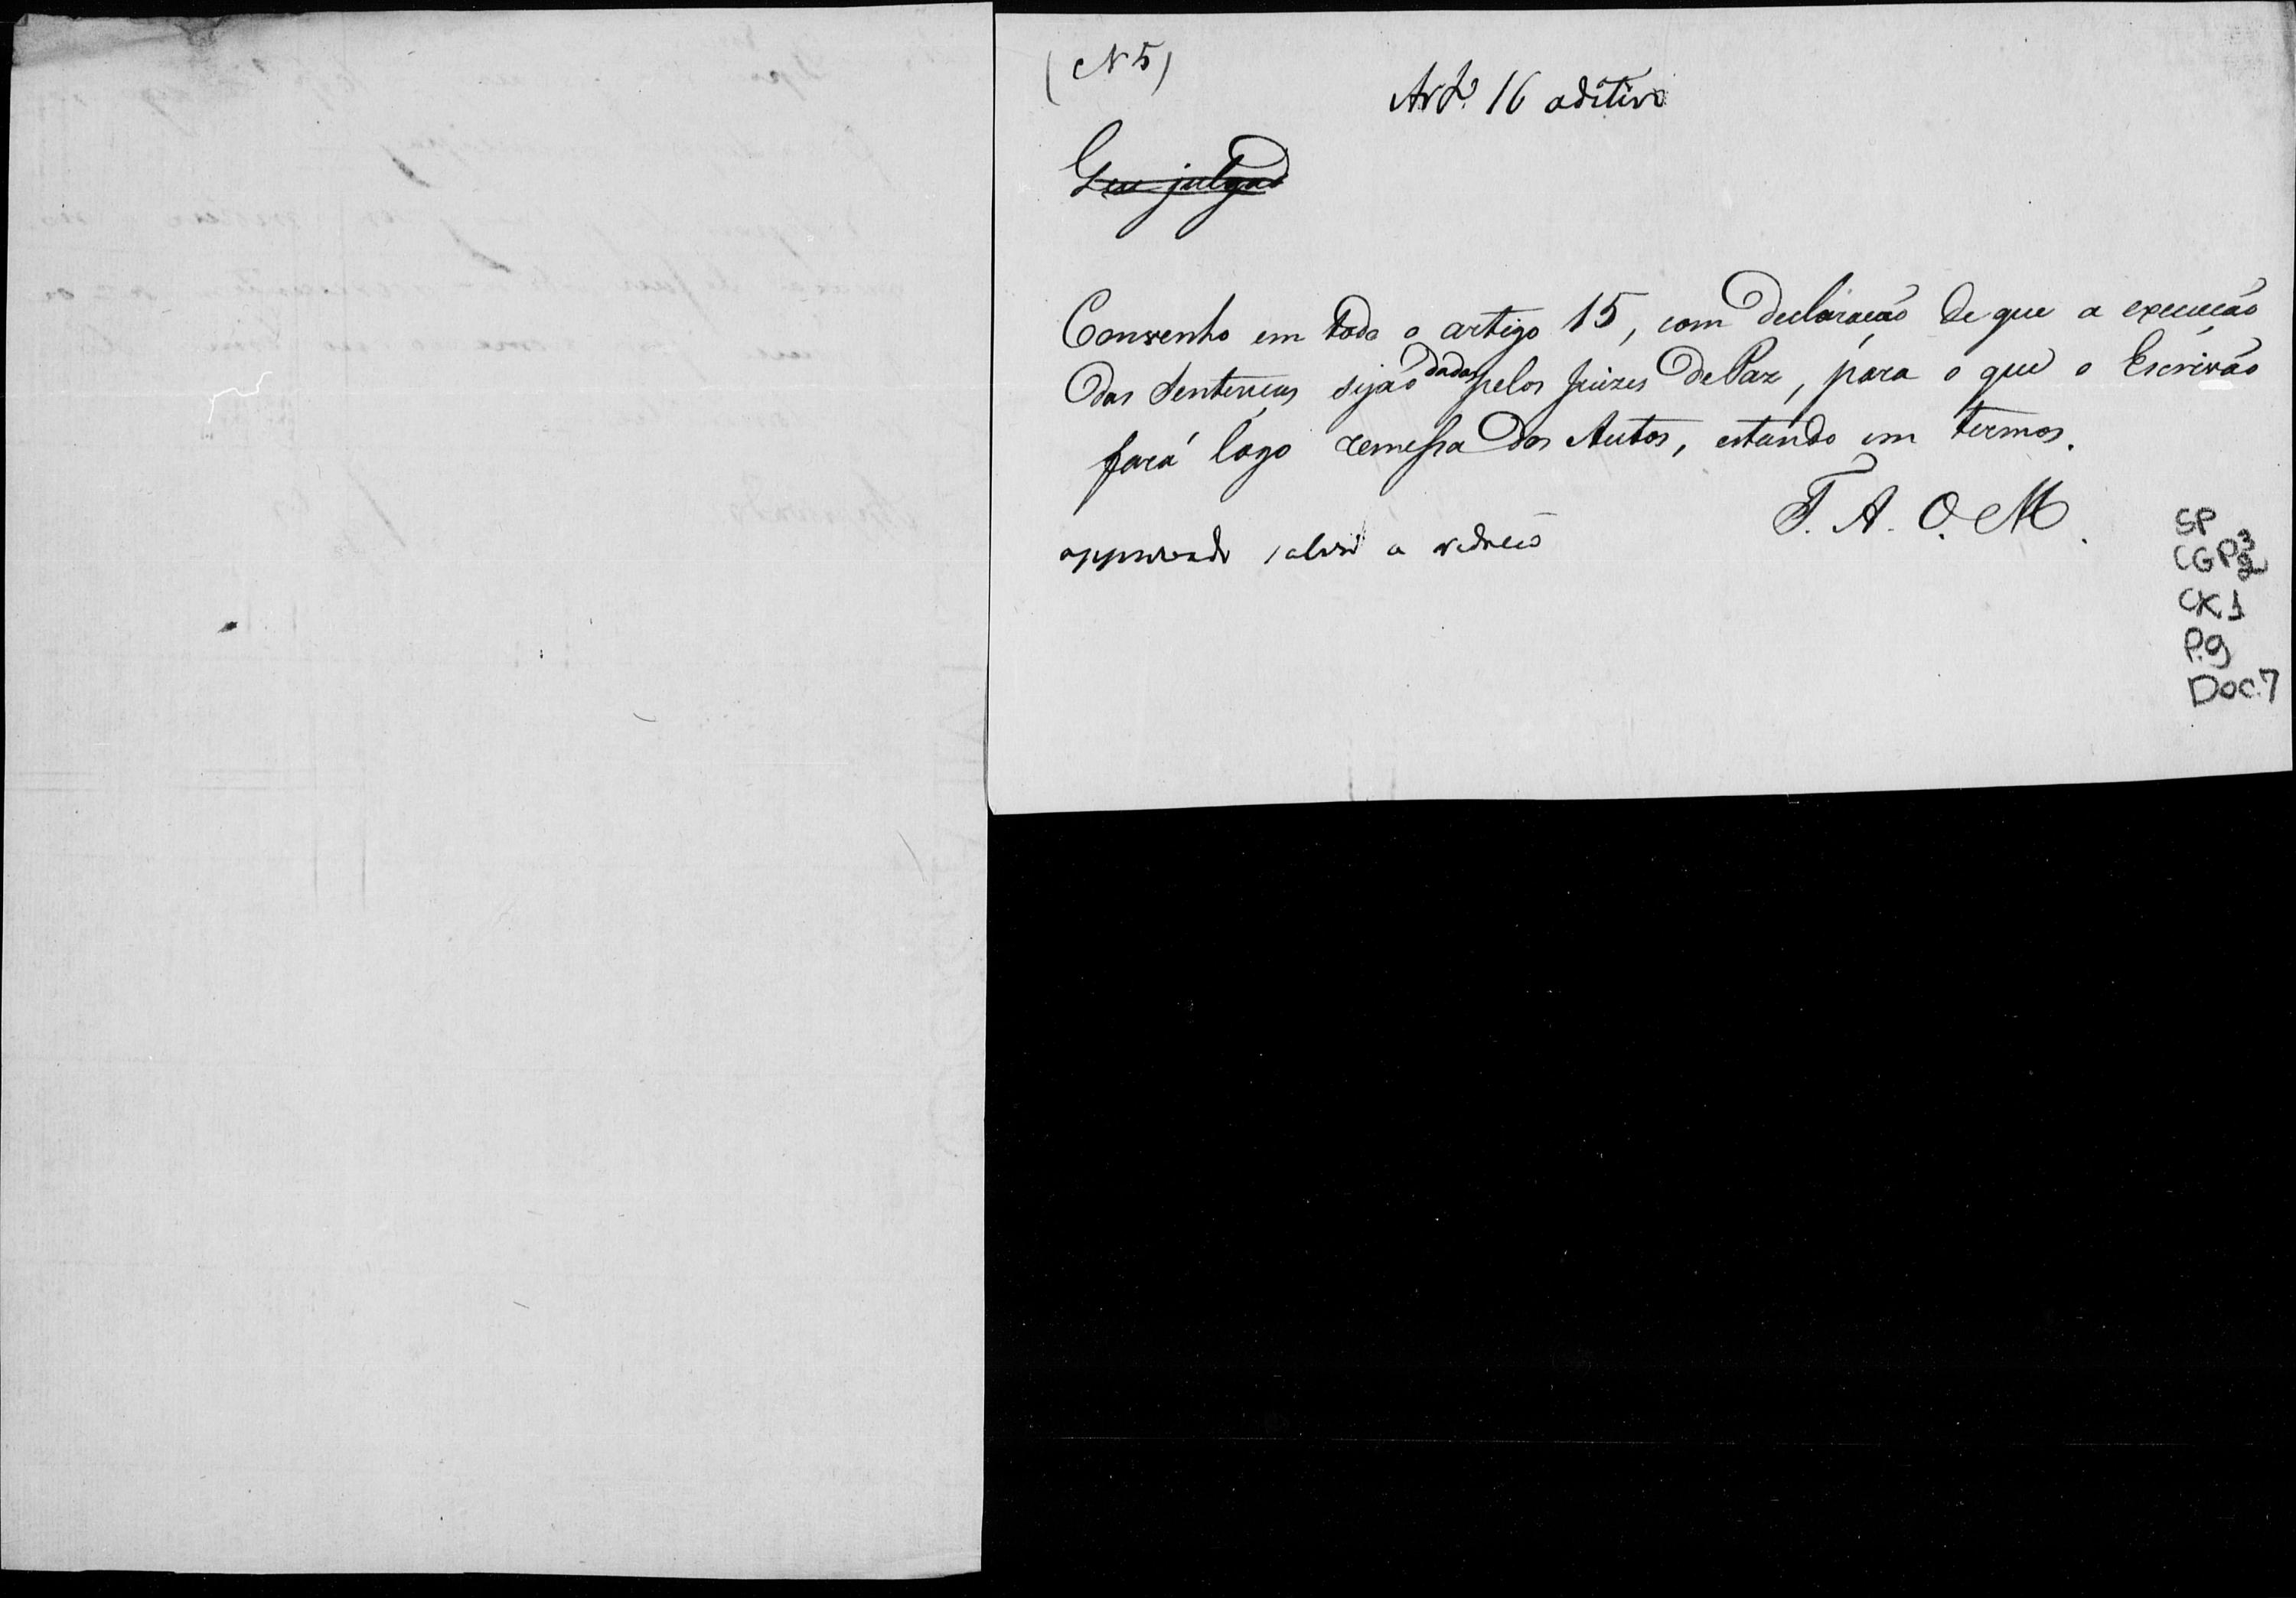 (N 5)
Art.º 16 aditivo
Que julga
Convenho em todo o artigo 15, com declaração de que a execução
das Sentenças sejão dadas pelos Juizes de Paz, para o que o Escrivão
fará logo remessa dos Autos, estando em termos.
T. A. O. M.
approvado salva a redacão
SP
CGP3
2
CX1
P.9
Doc.7